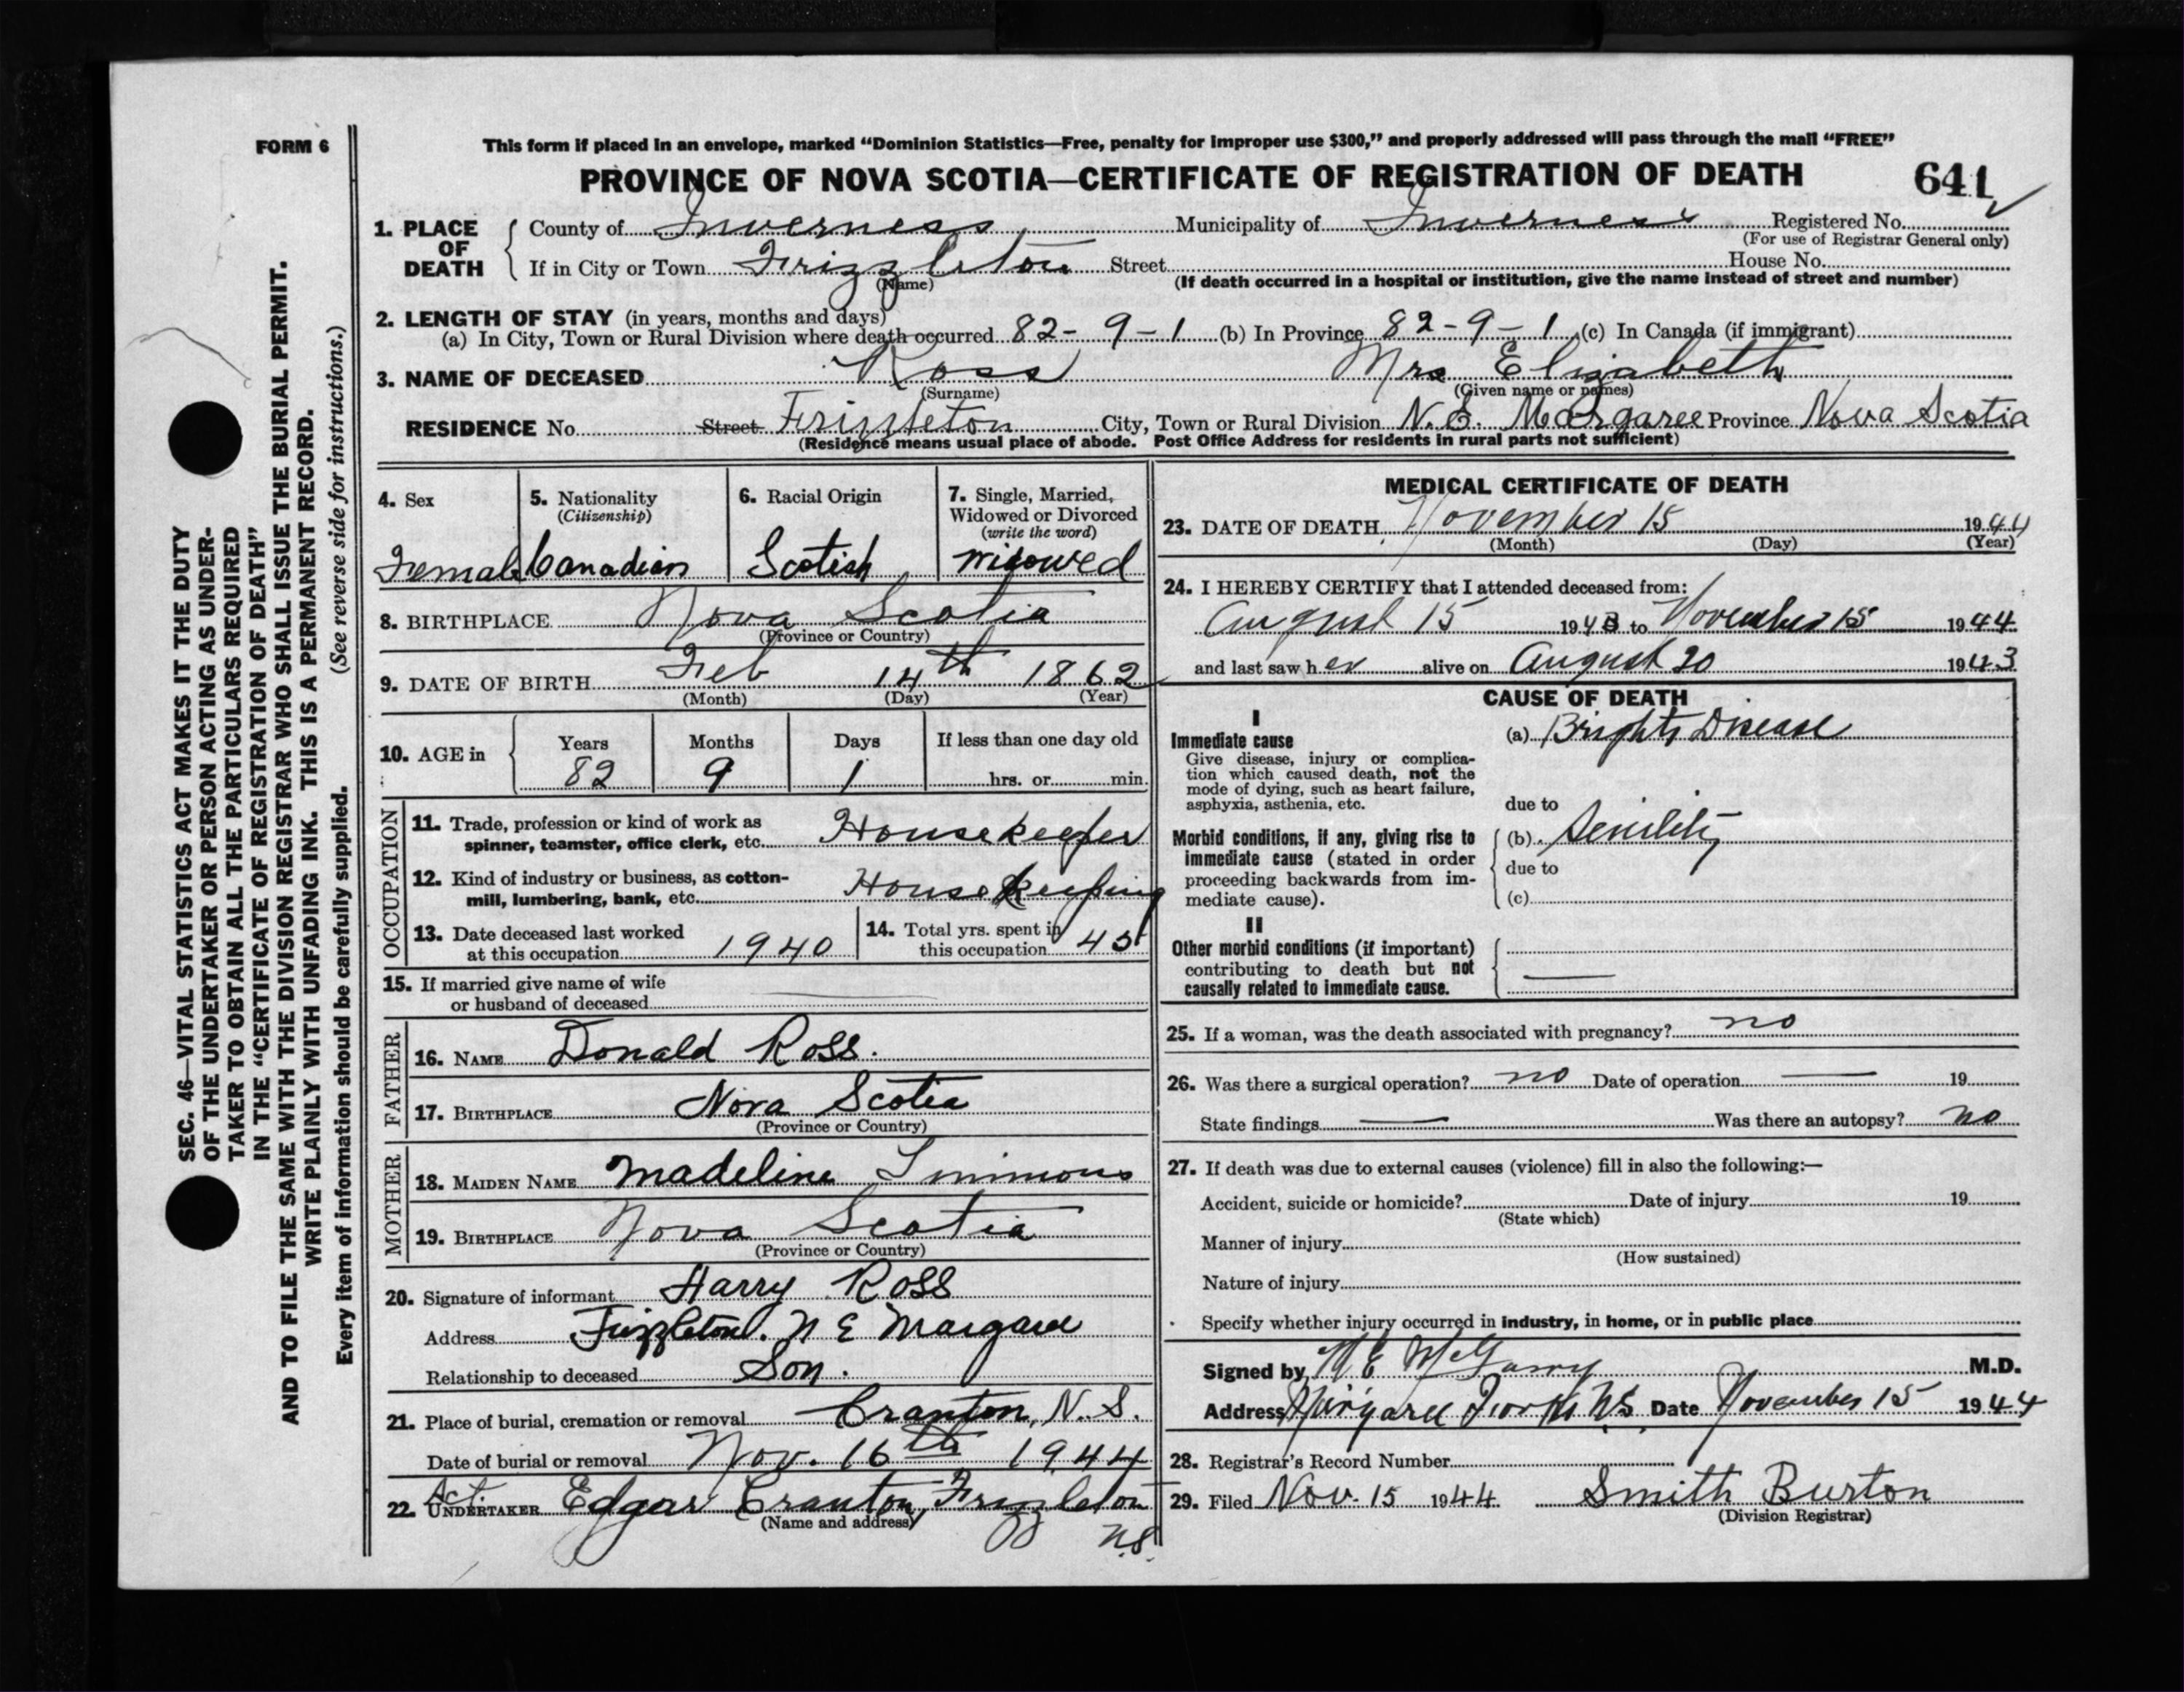 FORM 6
This form if placed in an envelope, marked “Dominion Statistics—Free, penalty for improper use $300,” and properly addressed will pass through the mail “FREE”
PROVINCE OF NOVA SCOTIA—CERTIFICATE OF REGISTRATION OF DEATH 641
1. PLACE OF DEATH County of Inverness Municipality of Inverness Registered No.
(For use of Registrar General only)
If in City or Town Frizzleton Street House No.
(Name) (If death occurred in a hospital or institution, give the name instead of street and number)
2. LENGTH OF STAY (in years, months and days)
(a) In City, Town or Rural Division where death occurred 82-9-1 (b) In Province 82-9-1 (c) In Canada (if immigrant)
3. NAME OF DECEASED Ross Mrs Elizabeth
(Surname) (Given name or names)
RESIDENCE No. Street Frizzleton City, Town or Rural Division N.E. Margaree Province Nova Scotia
(Residence means usual place of abode. Post Office Address for residents in rural parts not sufficient)
4. Sex 5. Nationality (Citizenship) 6. Racial Origin 7. Single, Married, Widowed or Divorced (write the word)
Female Canadian Scotish Widowed
8. BIRTHPLACE Nova Scotia
(Province or Country)
9. DATE OF BIRTH Feb 14th 1862
(Month) (Day) (Year)
10. AGE in Years Months Days If less than one day old
82 9 1 hrs. or min.
OCCUPATION
11. Trade, profession or kind of work as
spinner, teamster, office clerk, etc. Housekeeper
12. Kind of industry or business, as cotton-
mill, lumbering, bank, etc. House Keeping
13. Date deceased last worked
at this occupation 1940
14. Total yrs. spent in
this occupation 45
15. If married give name of wife
or husband of deceased
FATHER
16. NAME Donald Ross.
17. BIRTHPLACE Nova Scotia
(Province or Country)
MOTHER
18. MAIDEN NAME Madeline
19. BIRTHPLACE Nova Scotia
(Province or Country)
20. Signature of informant Harry Ross
Address Frizzleton. N E Margaree
Relationship to deceased Son.
21. Place of burial, cremation or removal Cranton, N.S.
Date of burial or removal Nov. 16th 1944
Act.
22. UNDERTAKER Edgar Cranton, Frizzleton
(Name and address) N.S.
MEDICAL CERTIFICATE OF DEATH
23. DATE OF DEATH November 15 1944
(Month) (Day) (Year)
24. I HEREBY CERTIFY that I attended deceased from:
August 15 1943 to November 15 1944
and last saw her alive on August 20 1943
CAUSE OF DEATH
I
Immediate cause (a) Brights Disease
Give disease, injury or complica-
tion which caused death, not the
mode of dying, such as heart failure,
asphyxia, asthenia, etc. due to
Morbid conditions, if any, giving rise to (b) Senility
immediate cause (stated in order due to
proceeding backwards from im-
mediate cause). (c)
II
Other morbid conditions (if important)
contributing to death but not
causally related to immediate cause.
25. If a woman, was the death associated with pregnancy? no
26. Was there a surgical operation? no Date of operation — 19
State findings — Was there an autopsy? no
27. If death was due to external causes (violence) fill in also the following:—
Accident, suicide or homicide? Date of injury 19
(State which)
Manner of injury
(How sustained)
Nature of injury
Specify whether injury occurred in industry, in home, or in public place
Signed by McGarry M.D.
Address Margaree Forks NS Date November 15 1944
28. Registrar's Record Number
29. Filed Nov. 15 1944. Smith Burton
(Division Registrar)
SEC. 46—VITAL STATISTICS ACT MAKES IT THE DUTY
OF THE UNDERTAKER OR PERSON ACTING AS UNDER-
TAKER TO OBTAIN ALL THE PARTICULARS REQUIRED
IN THE “CERTIFICATE OF REGISTRATION OF DEATH”
AND TO FILE THE SAME WITH THE DIVISION REGISTRAR WHO SHALL ISSUE THE BURIAL PERMIT.
WRITE PLAINLY WITH UNFADING INK. THIS IS A PERMANENT RECORD.
Every item of information should be carefully supplied. (See reverse side for instructions.)